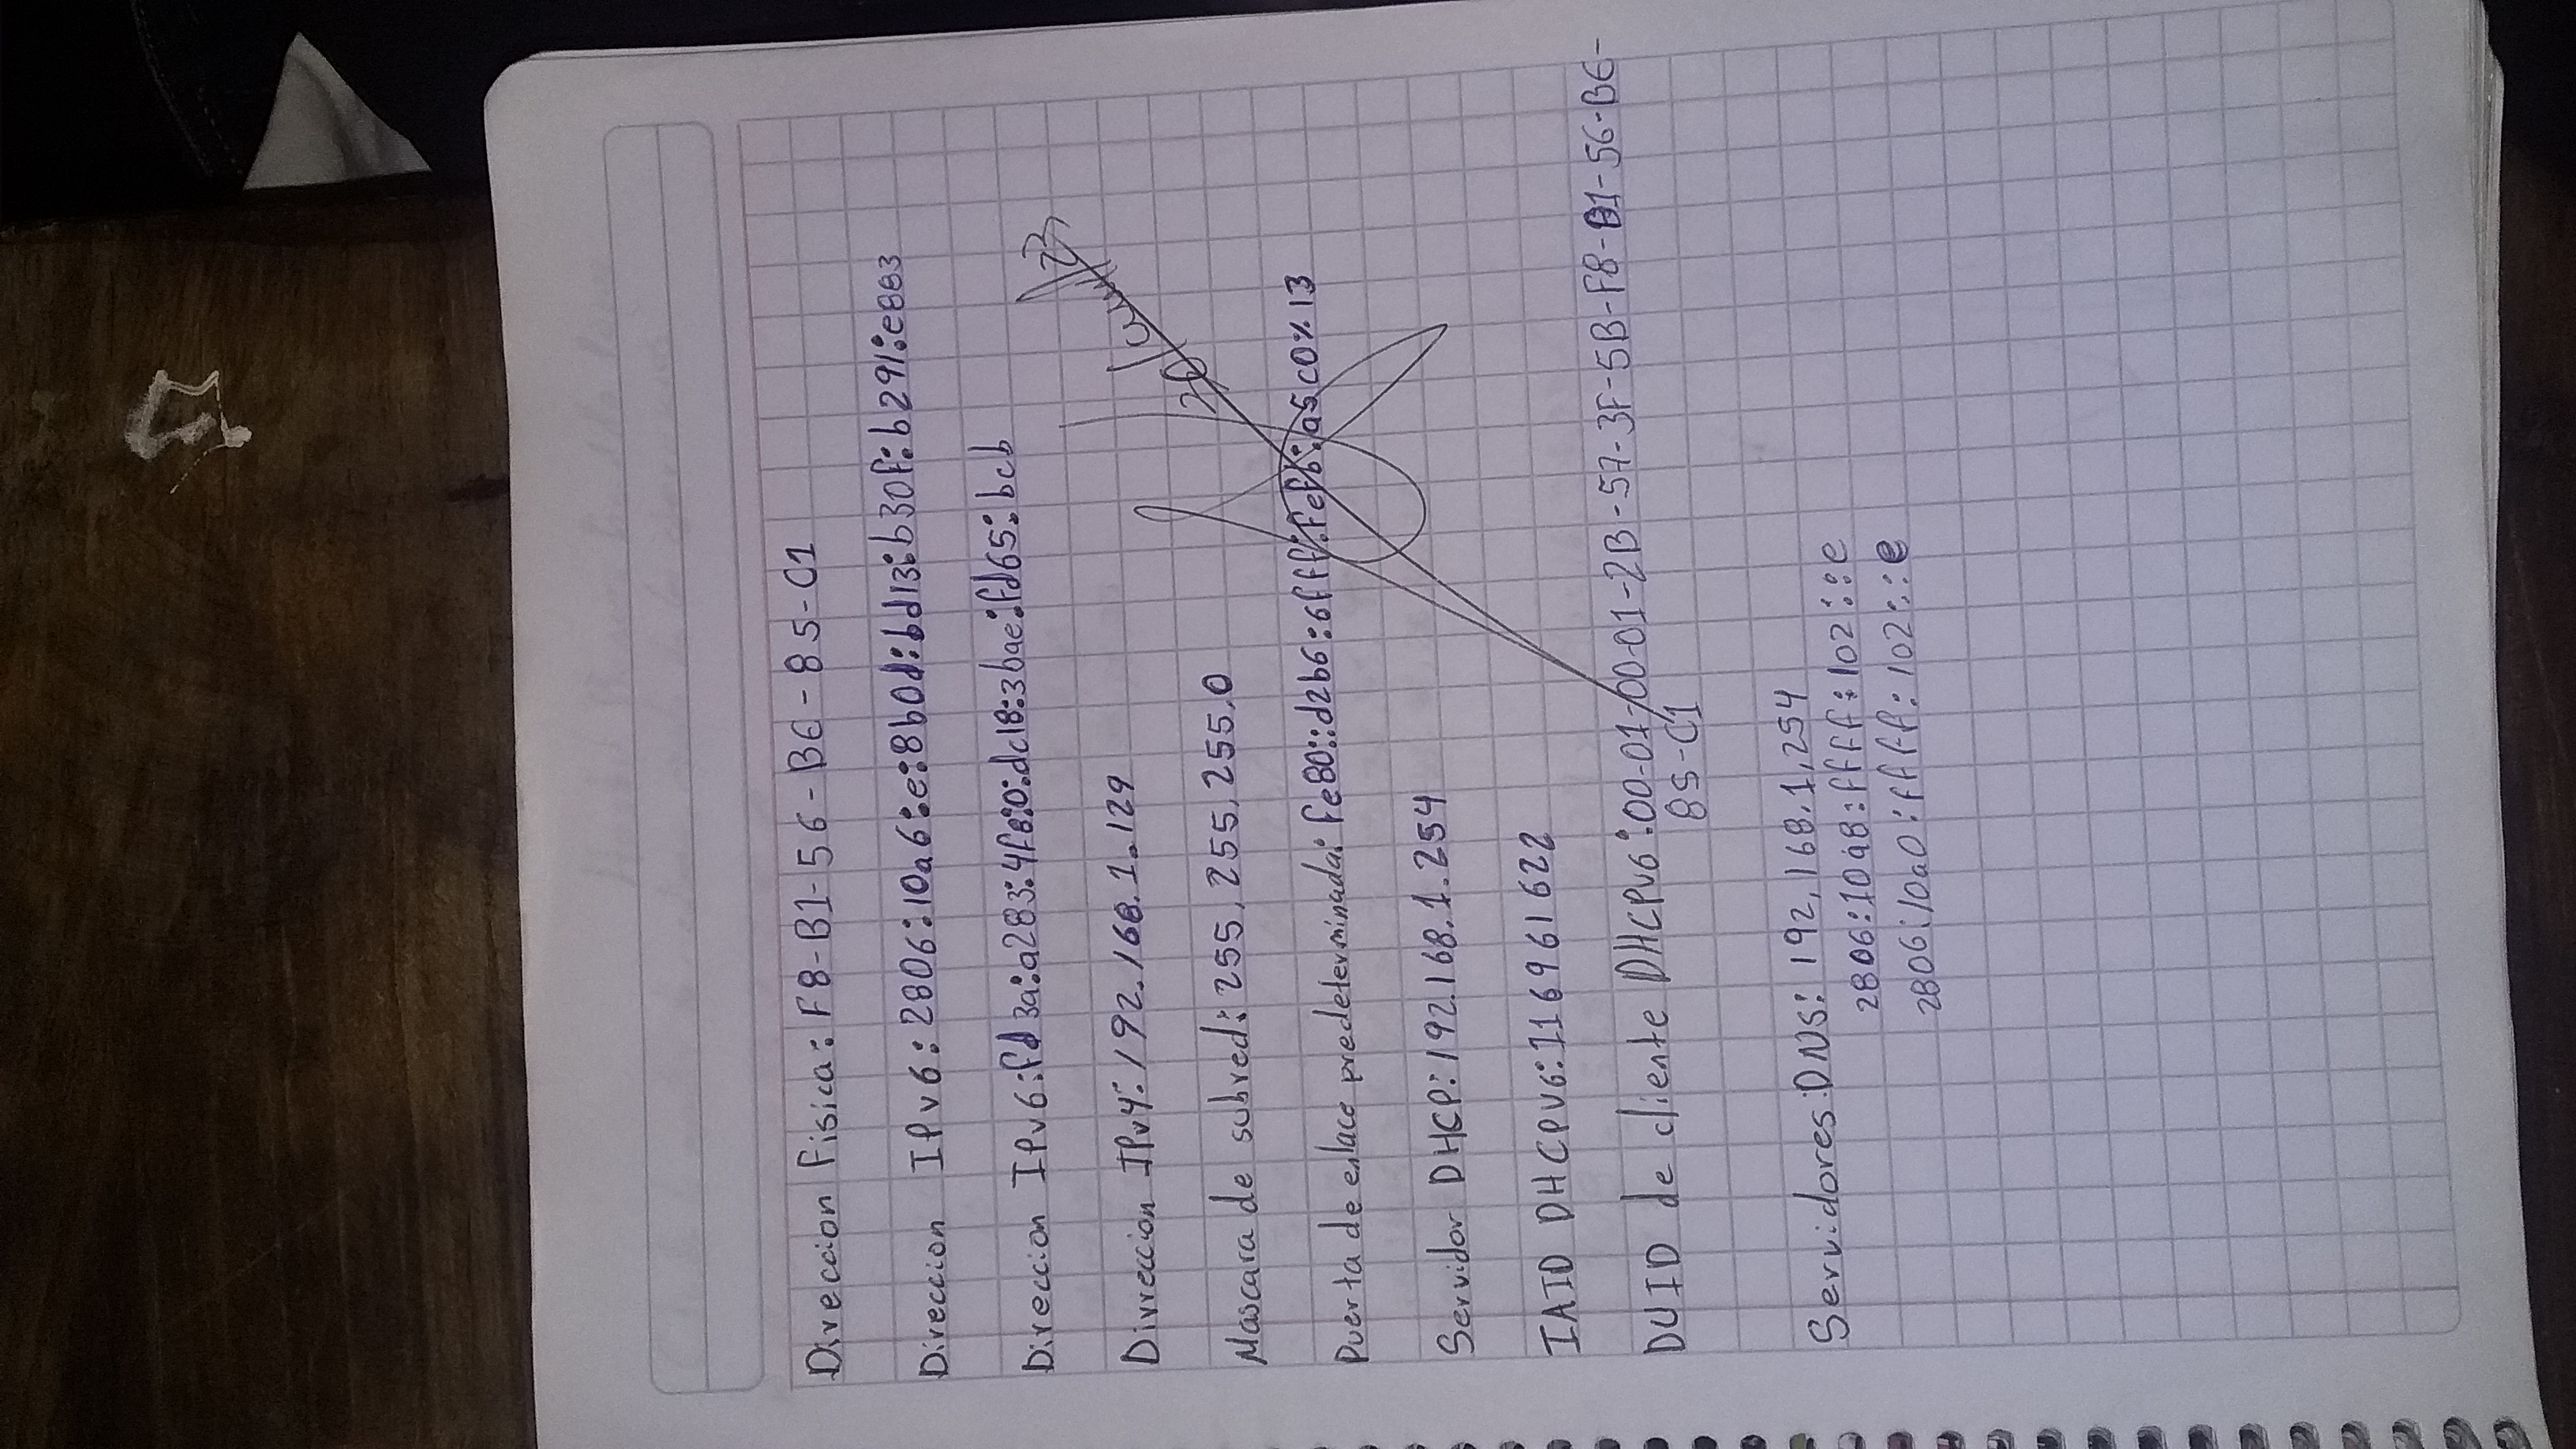 Direccion Fisica: F8-B1-56-BE-85-C1
Direccion IPv6: 2806:10a6:e:8b0d:bd13:b30f:b291:e883
Direccion IPv6:fd3a:a283:4f8:0:dc18:3bae:fd65:bcb
Divreccion IPv4: 192.168.1.129
Mascara de subred: 255,255,255.0
Puerta de enlace predeterminada: fe80::d2b6:6fff:fefb:a5c0%13
Servidor DHCP: 192.168.1.254
IAID DHCPv6: 116961622
DUID de cliente DHCPv6:00-01-00-01-2B-57-3F-5B-F8-B1-56-BE-
85-C1
Servidores:DNS: 192,168.1,254
2806:10a8:ffff:102:::e
2806:10a0:ffff:102:::e